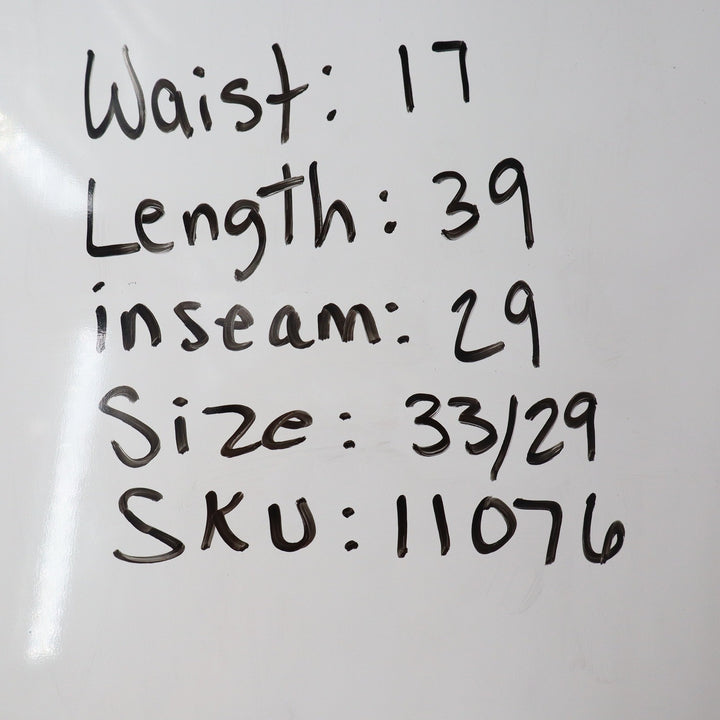 Waist: 17
Length: 39
inseam: 29
Size: 33/29
SKU: 11076